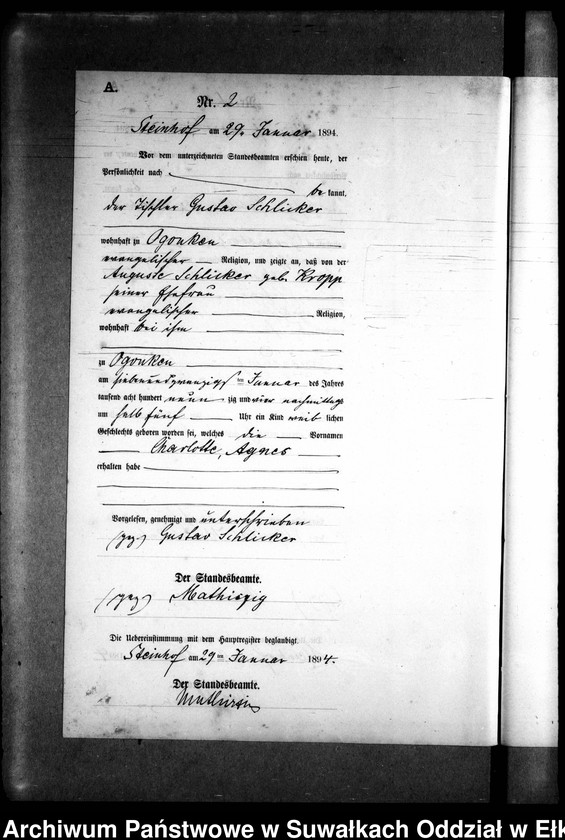 A.
Nr. 2
Steinhof am 29. Januar 1894.
Vor dem unterzeichneten Standesbeamten erschien heute, der
Persönlichkeit nach
be kannt,
der Tischler Gustav Schlicker
wohnhaft zu Ogonken
evangelischer Religion, und zeigte an, daß von der
Auguste Schlicker geb. Kropp
seiner Ehefrau
evangelischer Religion,
wohnhaft bei ihm
zu Ogonken
am siebenundzwanzigsten Januar des Jahres
tausend acht hundert neun zig und vier nachmittags
um halb fünf Uhr ein Kind weib lichen
Geschlechts geboren worden sei, welches die Vornamen
Charlotte, Agnes
erhalten habe
Vorgelesen, genehmigt und unterschrieben
(gez.) Gustav Schlicker
Der Standesbeamte.
(gez.) Mathiszig
Die Uebereinstimmung mit dem Hauptregister beglaubigt.
Steinhof am 29 ten Januar 1894.
Der Standesbeamte.
Archiwum Państwowe w Suwałkach Oddział w Ełk